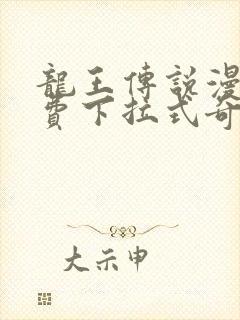 龍王傳說漫
費下拉式奇
大示申